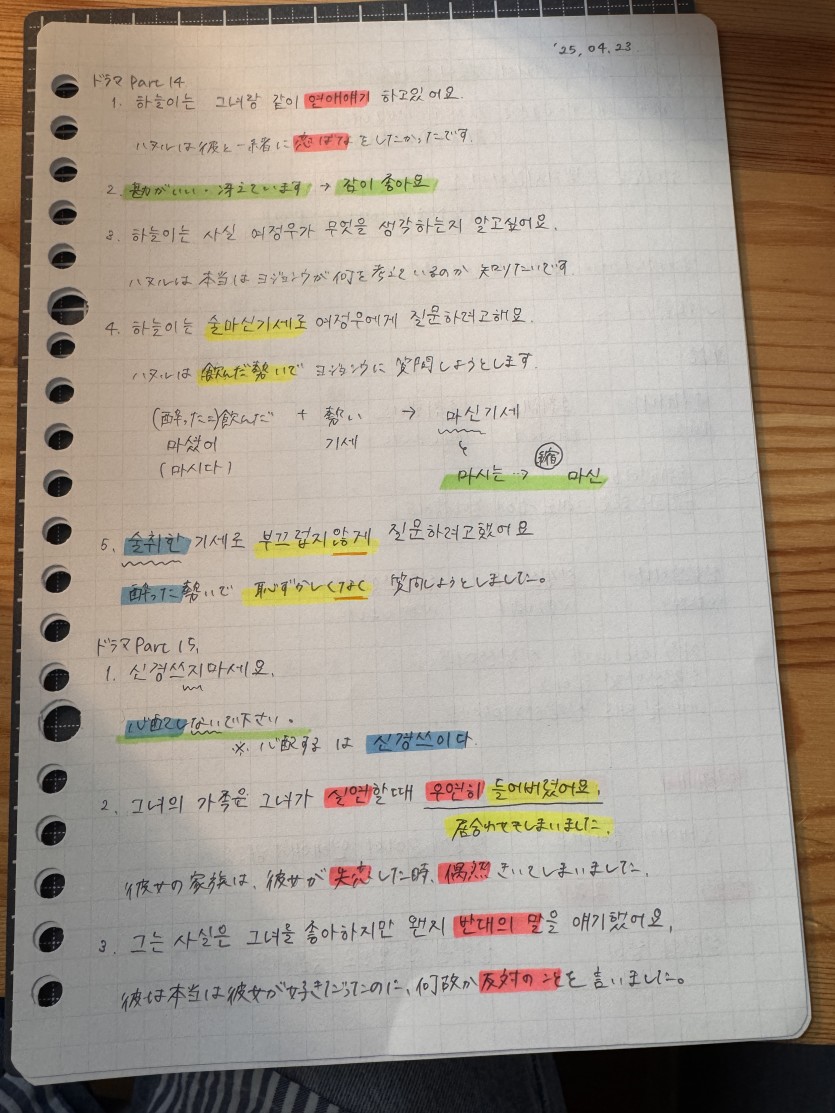 '25, 04. 23
ドラマ Part 14
1. 하늘이는 그녀랑 같이 연애얘기 하고있어요.
ハヌルは彼と一緒に恋ばなをしたかったです。
2. 勘がいい・冴えています → 감이 좋아요
3. 하늘이는 사실 여정우가 무엇을 생각하는지 알고싶어요.
ハヌルは本当はヨジョンウが何を考えているのか知りたいです
4. 하늘이는 술마신기세로 여정우에게 질문하려고해요.
ハヌルは飲んだ勢いでヨジョンウに質問しようとします.
(酔ったこ)飲んだ + 勢い → 마신기세
마셨어 기세
(마시다)
마시는 …> 縮 마신
5. 술취한 기세로 부끄럽지않게 질문하려고했어요
酔った勢いで 恥ずかしくなく 質問しようとしました。
ドラマ Part 15.
1. 신경쓰지마세요.
心配しないで下さい。
※ 心配する は 신경쓰이다.
2. 그녀의 가족은 그녀가 실연할때 우연히 들어버렸어요.
居合わせてしまいました.
彼女の家族は、彼女が失恋した時、偶然きいてしまいました.
3. 그는 사실은 그녀를 좋아하지만 왠지 반대의 말을 얘기했어요.
彼は本当は彼女が好きだったのに、何故か反対のことを言いました。